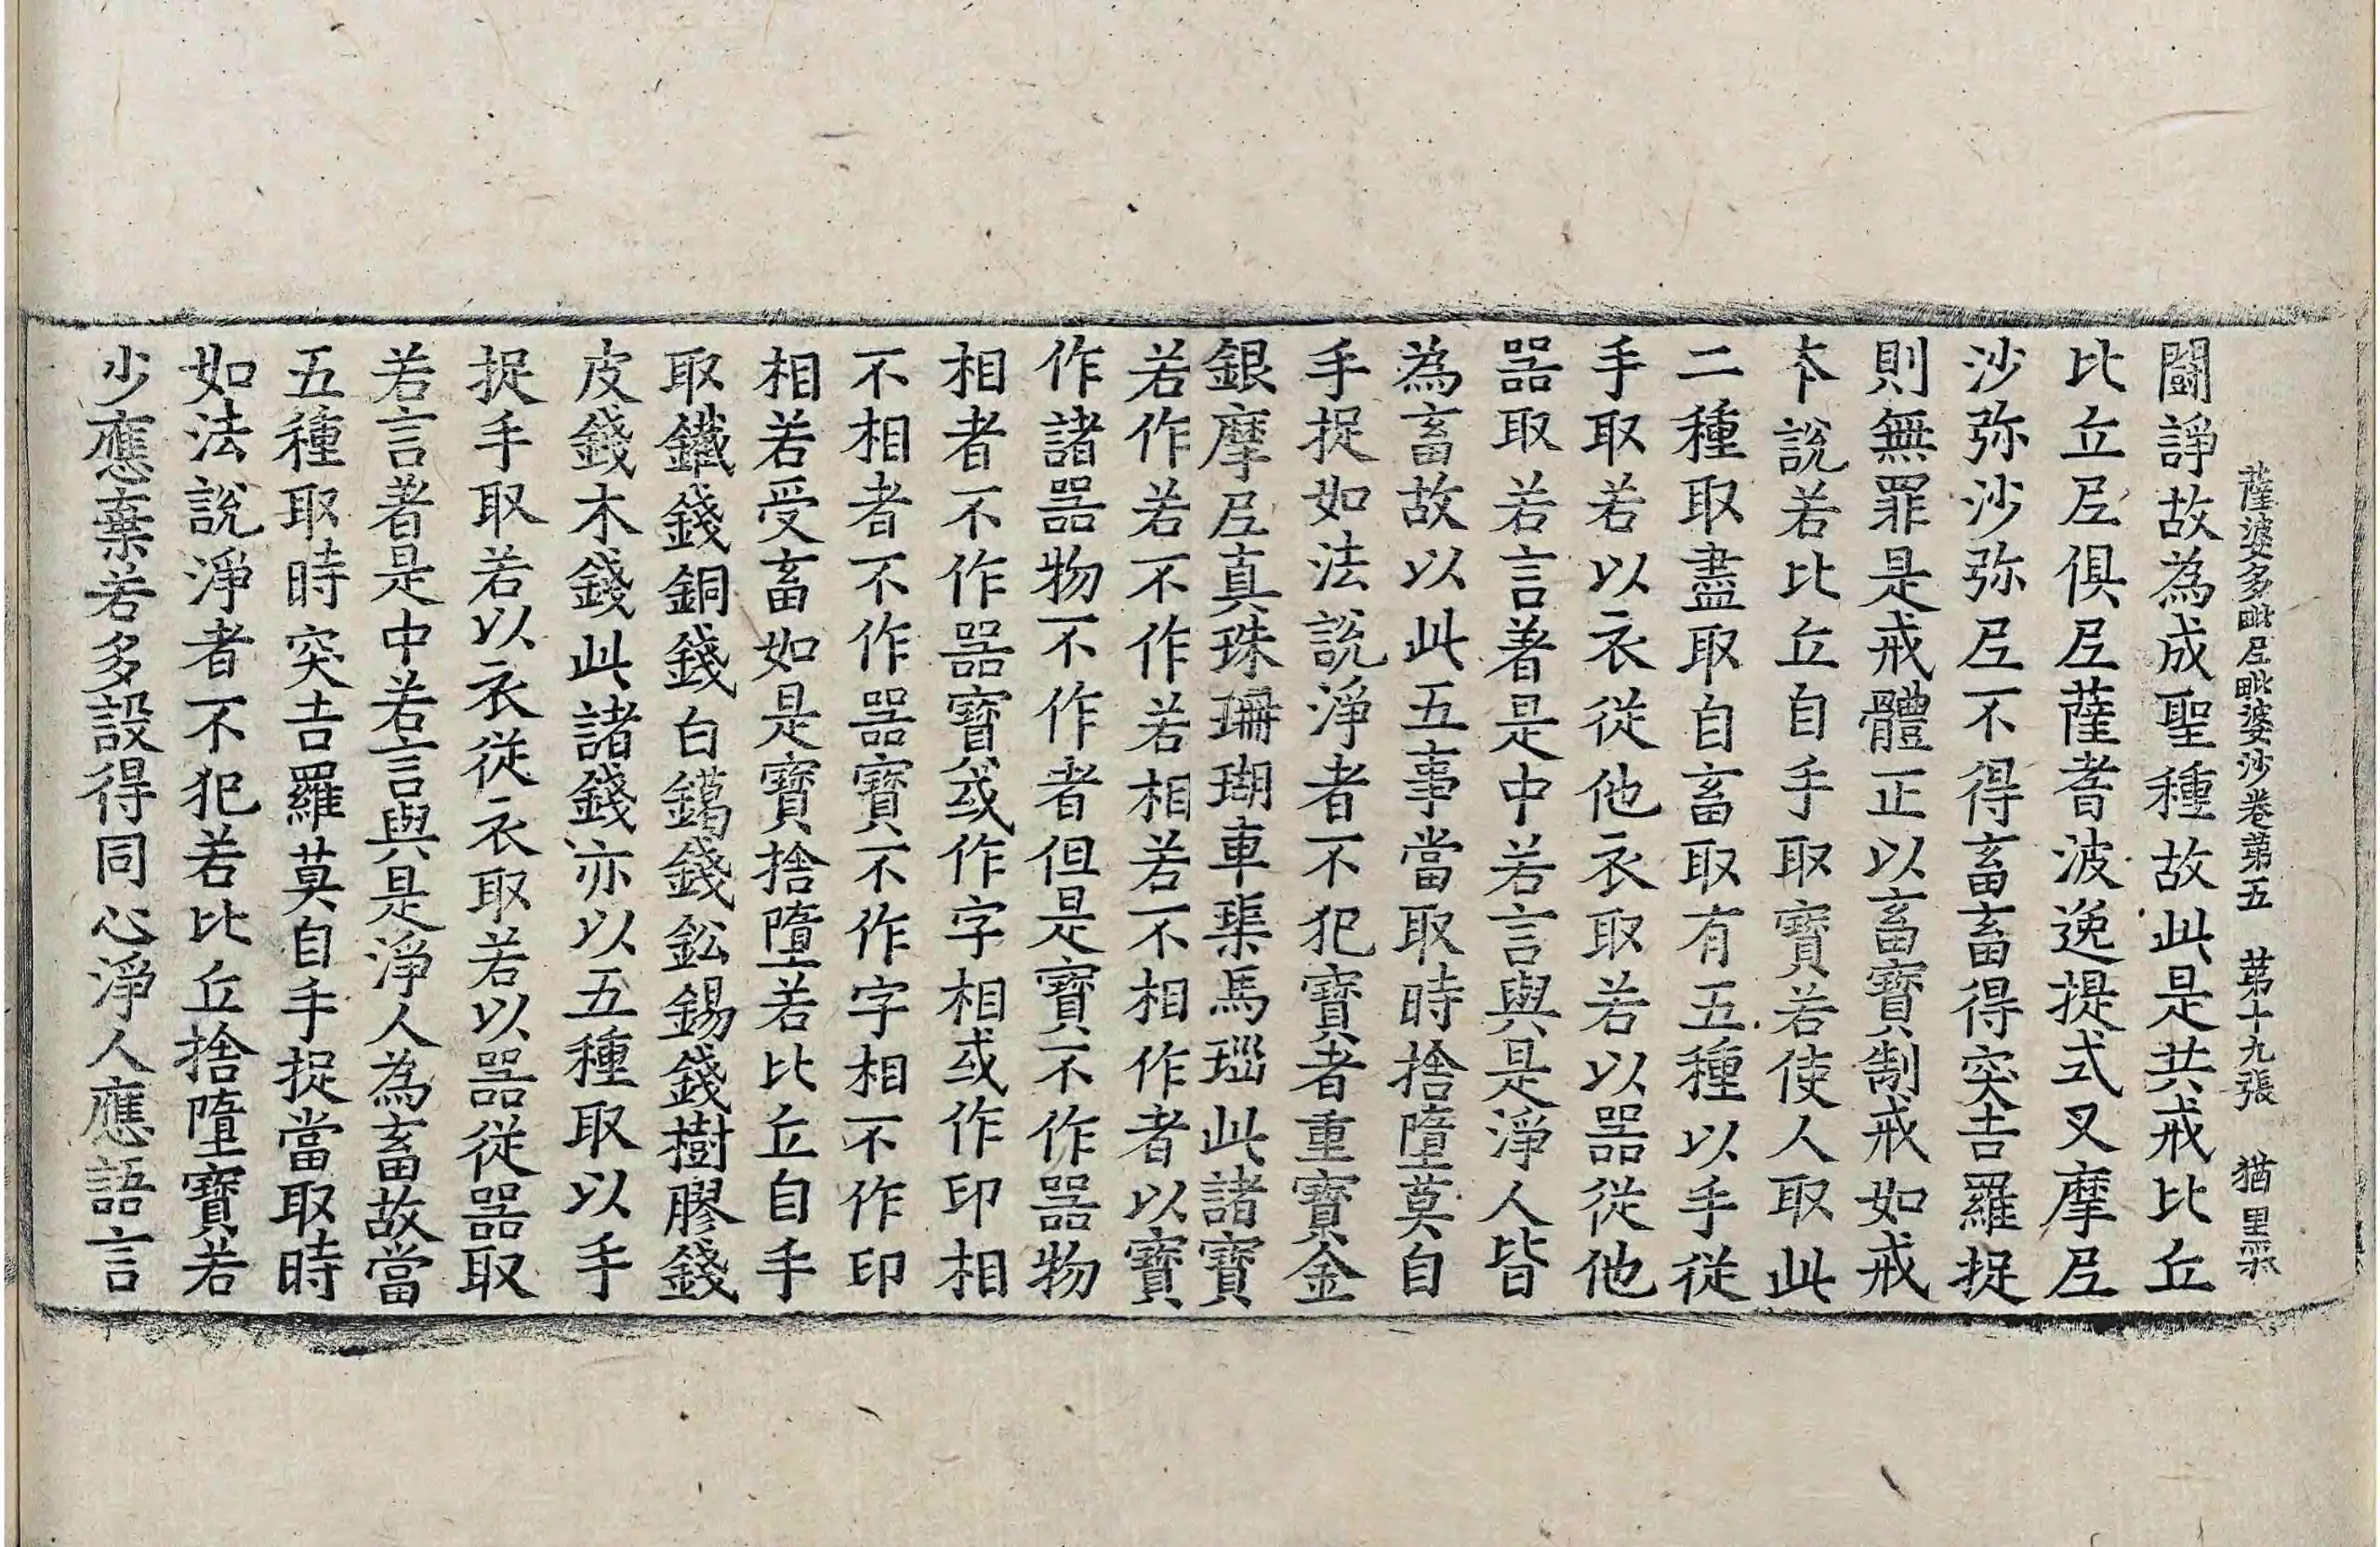 薩婆多毗尼毗婆沙卷第五　第十九張　猶
闘諍故為成聖種故此是共戒比丘
比丘尼俱尼薩耆波逸提式叉摩尼
沙弥沙弥尼不得畜畜得突吉羅捉
則無罪是戒體正以畜寶制戒如戒
本說若比丘自手取寶若使人取此
二種取盡取自畜取有五種以手從
手取若以衣從他衣取若以器從他
器取若言著是中若言與是淨人皆
為畜故以此五事當取時捨墮莫自
手捉如法說淨者不犯寶者重寶金
銀摩尼真珠珊瑚車𤦲馬瑙此諸寶
若作若不作若相若不相作者以寶
作諸器物不作者但是寶不作器物
相者不作器寶或作字相或作印相
不相者不作器寶不作字相不作印
相若受畜如是寶捨墮若比丘自手
取鐵錢銅錢白鑞錢鈆錫錢樹膠錢
皮錢木錢此諸錢亦以五種取以手
捉手取若以衣從衣取若以器從器取
若言著是中若言與是淨人為畜故當
五種取時突吉羅莫自手捉當取時
如法說淨者不犯若比丘捨墮寶若
少應棄若多設得同心淨人應語言